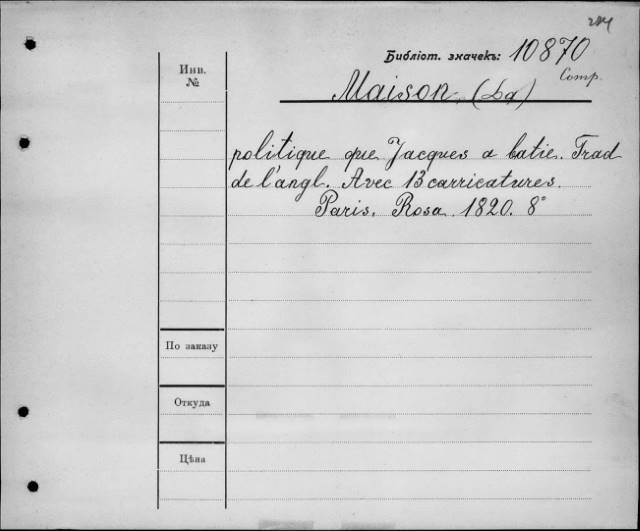 284
Библіот. значекъ: 10870
Comp.
Инв.
№
Maison, (La)
politique que Jacques a batie. Trad
de l'angl. Avec 13 carricatures.
Paris. Rosa. 1820. 8°
По заказу
Откуда
Цѣна